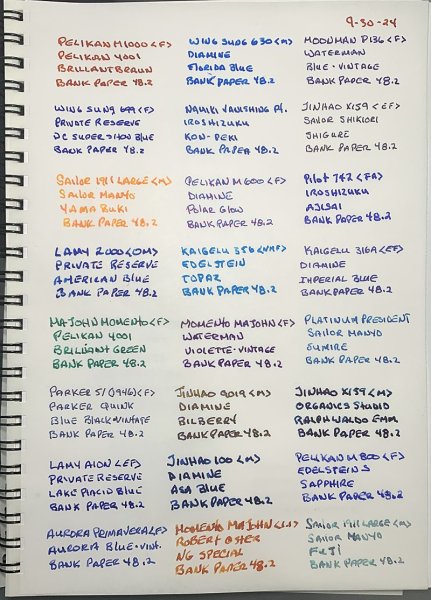 9-30-24
PELIKAN M1000 <F>
PELIKAN 4001
BRILLANTBRAUN
BANK PAPER 48.2
WING SUNG 630 <M>
DIAMINE
FLORIDA BLUE
BANK PAPER 48.2
MOONMAN P136 <F>
WATERMAN
BLUE-VINTAGE
BANK PAPER 48.2
WING SUNG 699 <F>
PRIVATE RESERVE
DC SUPERSHOW BLUE
BANK PAPER 48.2
NAMIKI VANISHING PT.
IROSHIZUKU
KON-PEKI
BANK PAPER 48.2
JINHAO X159 <EF>
SAILOR SHIKIORI
SHIGURE
BANK PAPER 48.2
SAILOR 1911 LARGE <M>
SAILOR MANYO
YAMABUKI
BANK PAPER 48.2
PELIKAN M600 <F>
DIAMINE
POLAR GLOW
BANK PAPER 48.2
PILOT 742 <FA>
IROSHIZUKU
AJISAI
BANK PAPER 48.2
LAMY 2000 <OM>
PRIVATE RESERVE
AMERICAN BLUE
BANK PAPER 48.2
KAIGELU 356
EDELSTEIN
TOPAZ
BANK PAPER 48.2
KAIGELU 316A <EF>
DIAMINE
IMPERIAL BLUE
BANK PAPER 48.2
MAJOHN MOMENTO <F>
PELIKAN 4001
BRILLIANT GREEN
BANK PAPER 48.2
MOMENTO MAJOHN <F>
WATERMAN
VIOLETTE-VINTAGE
BANK PAPER 48.2
PLATINUM PRESIDENT
SAILOR MANYO
SUMIRE
BANK PAPER 48.2
PARKER 51 (1946) <F>
PARKER QUINK
BLUE BLACK-VINTAGE
BANK PAPER 48.2
JINHAO 9019 <M>
DIAMINE
BILBERRY
BANK PAPER 48.2
JINHAO X159 <M>
ORGANICS STUDIO
RALPH WALDO EMM
BANK PAPER 48.2
LAMY AION <EF>
PRIVATE RESERVE
LAKE PLACID BLUE
BANK PAPER 48.2
JINHAO 100 <M>
DIAMINE
ASA BLUE
BANK PAPER 48.2
PELIKAN M800 <F>
EDELSTEINS
SAPPHIRE
BANK PAPER 48.2
AURORA PRIMAVERA <F>
AURORA BLUE-VINT.
BANK PAPER 48.2
MOMENTO MAJOHN
ROBERT OSTER
NG SPECIAL
BANK PAPER 48.2
SAILOR 1911 LARGE <M>
SAILOR MANYO
FUJI
BANK PAPER 48.2